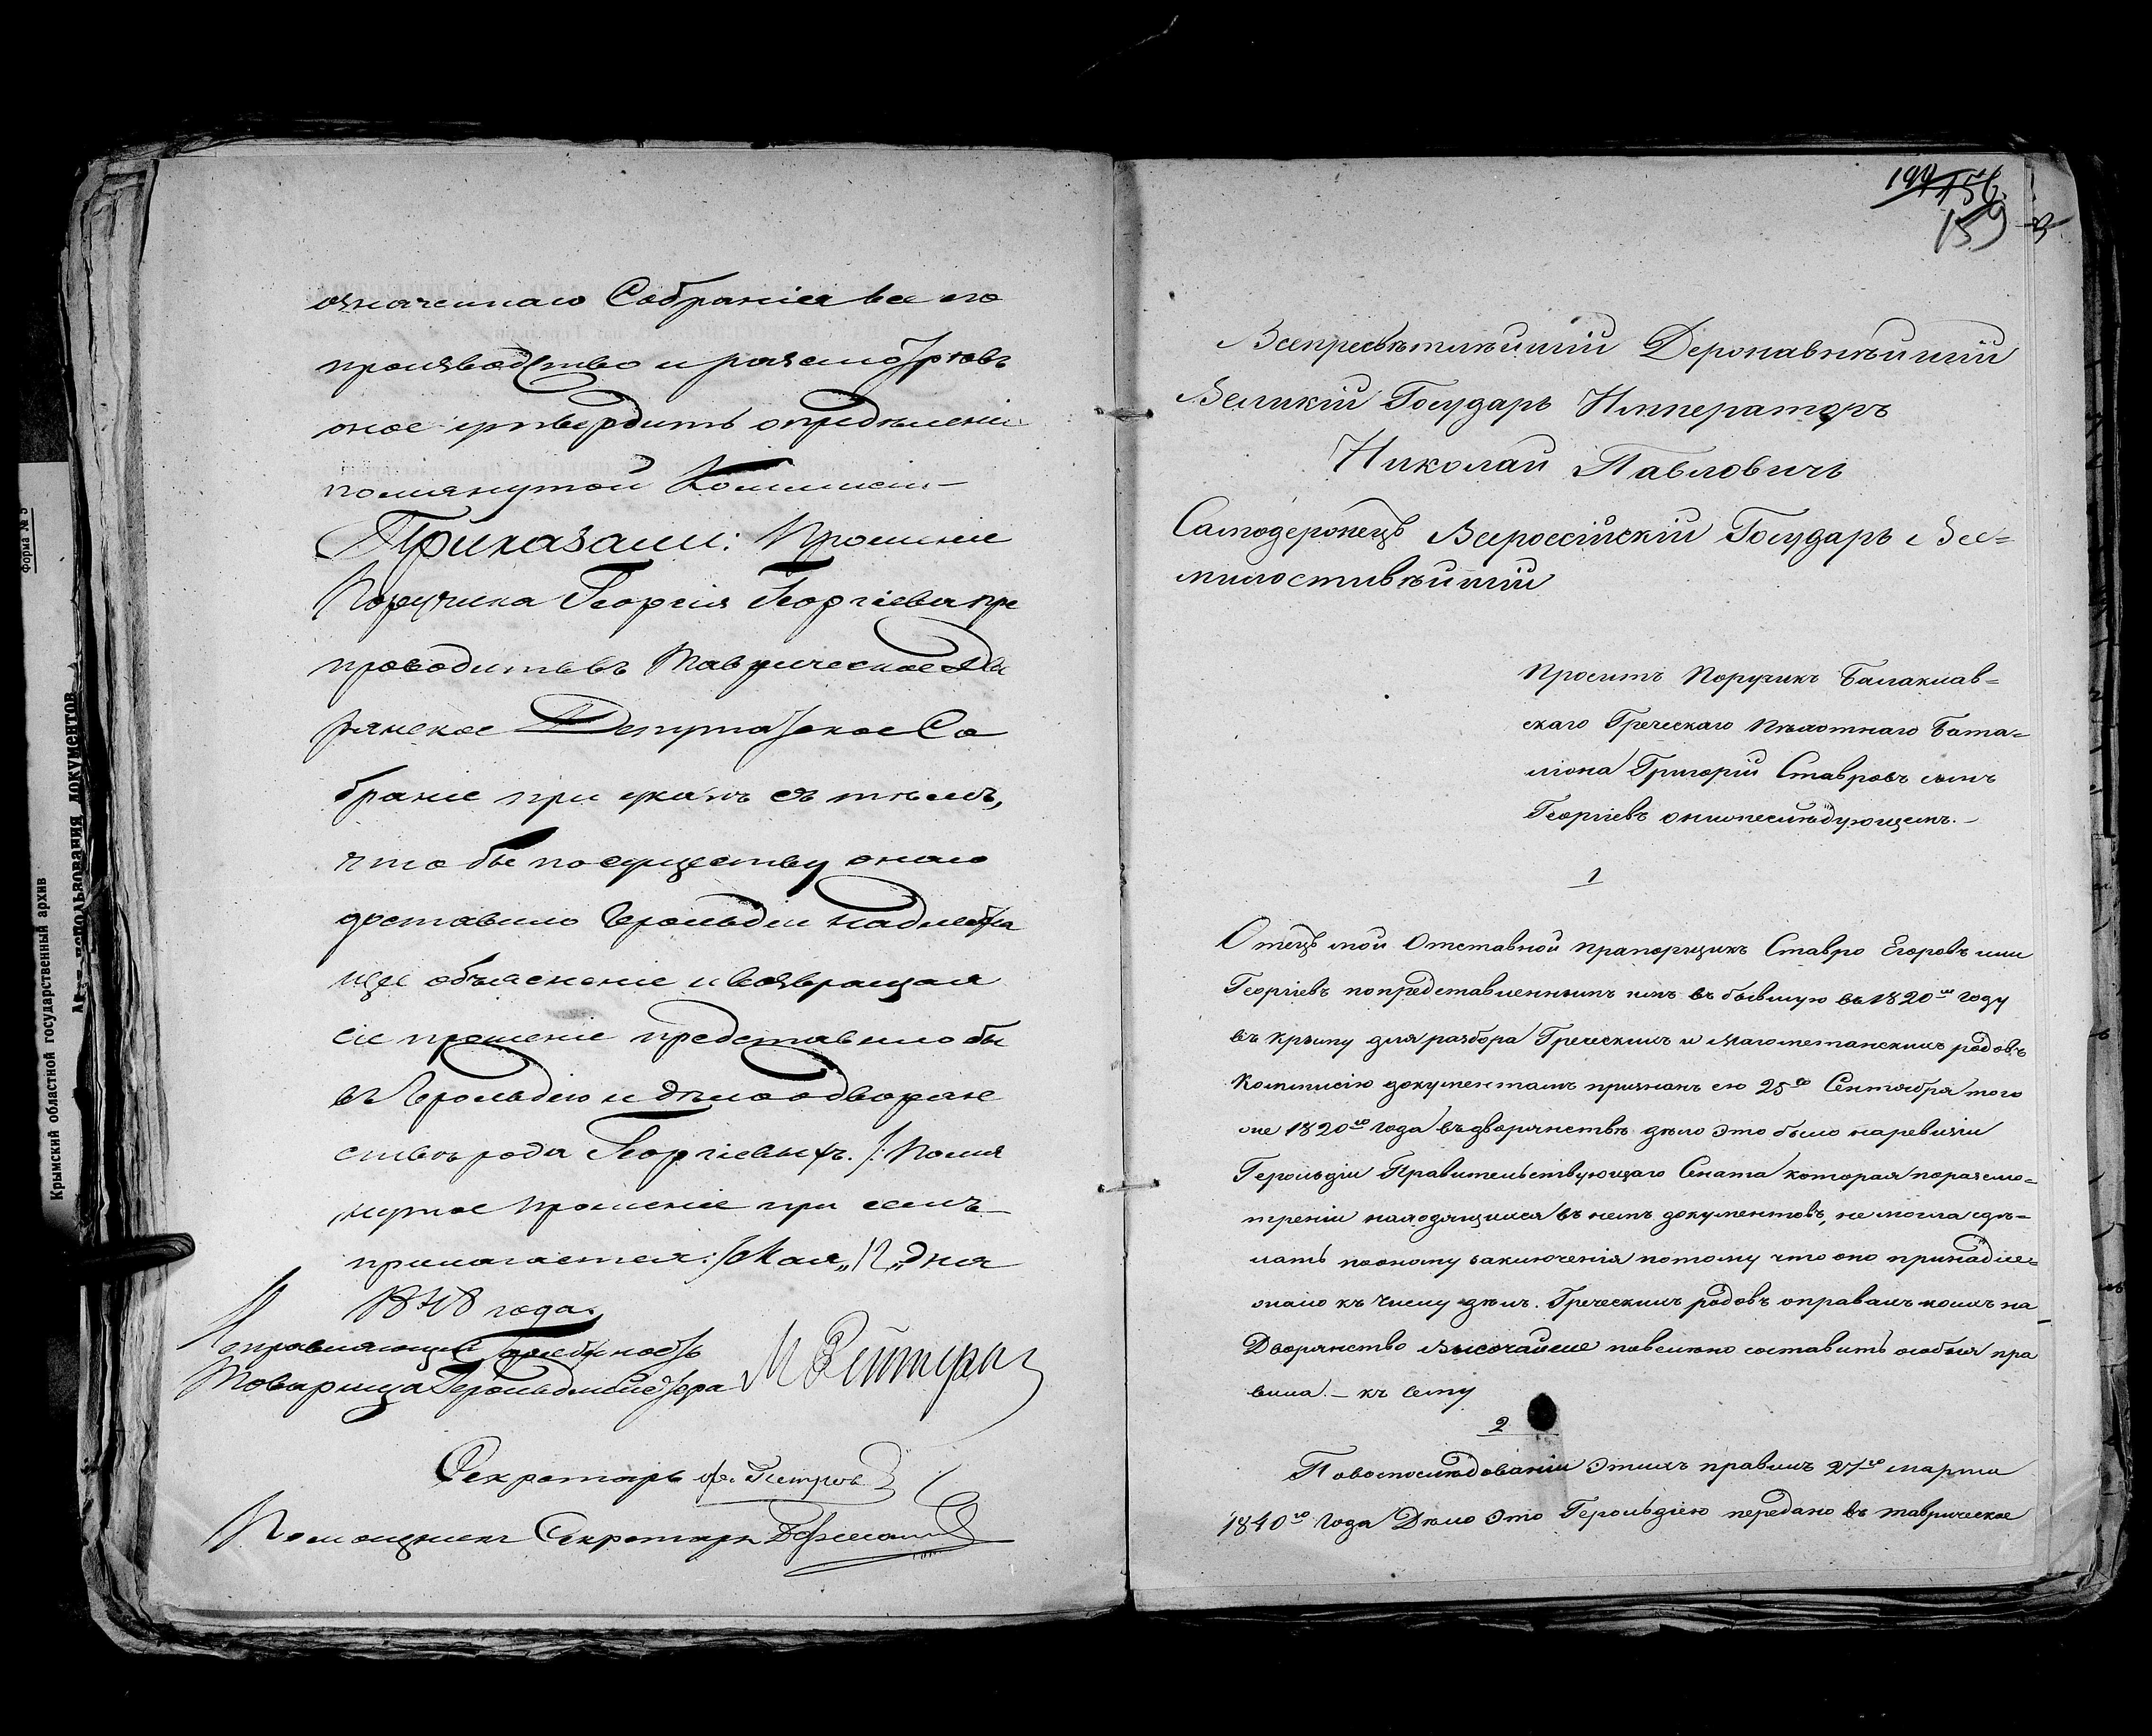 означеннаго Собранія все его
производство и разсмотрѣвъ
оное утвердить опредѣленіе
помянутой Коммисіи.—
Приказали: Прошеніе
Поручика Георгія Георгіева пре
проводить въ Таврическое Дво
рянское Депутатское Со
браніе при указѣ съ тѣмъ,
что бы по существу онаго
доставило Герольдіи надлежа
щее объясненіе и возвращая
сіе прошеніе представило бы
въ Герольдію и дѣло о дворян
ствѣ рода Георгіевыхъ. /: Помя
нутое прошеніе при семъ
прилагается :/ Мая „12„ дня
1848 года.
Исправляющій должность
Товарища Герольдмейстера
Секретарь Петровъ
Помощникъ Секретаря
199 156
159
Всепресвѣтлѣйшій Державнѣйшій
Великій Государь Императоръ
Николай Павловичъ
Самодержецъ Всероссійскій Государь Все=
милостивѣйшій
Проситъ Поручикъ Балаклав=
скаго Греческаго Пѣхотнаго Бата=
ліона Григорій Ставровъ сынъ
Георгіевъ о нижеслѣдующемъ.—
1
Отецъ мой Отставной прапорщикъ Ставро Егоровъ или
Георгіевъ по представленнымъ имъ въ бывшую въ 1820мъ году
въ Крыму для разбора Греческихъ и магометанскихъ родовъ
Коммисію документамъ признанъ ею 25го Сентября того
же 1820го года въ дворянствѣ дѣло это было на ревизіи
Герольдіи Правительствующаго Сената которая по разсмо=
треніи находящихся въ немъ документовъ, не могла сдѣ=
лать по оному заключенія потому что оно принадле=
жало къ числу дѣлъ. Греческихъ родовъ о правахъ коихъ на
Дворянство высочайше повелѣно составить особыя пра
вила.— къ сему
2
По воспослѣдованіи этихъ правилъ 27го марта
1840го года Дѣло это Герольдіею передано въ таврическое
Крымский областной государственный архив
использования документов
Форма № 5